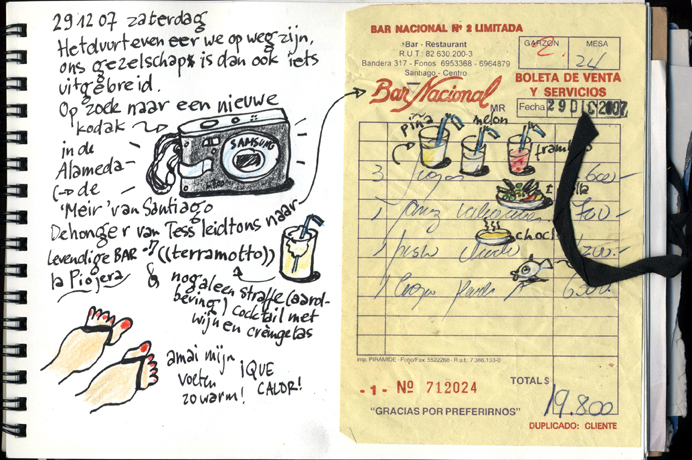 29 12 07 zaterdag
Het duurt even eer we op weg zijn,
ons gezelschap is dan ook iets
uitgebreid.
Op zoek naar een nieuwe
'kodak
in de
SAMSUNG
Alameda
de
'Meir' van Santiago
De honger van Tess leidt ons naar
Levendige BAR ((terramotto))
la Piojera
nogal een straffe (aard-
beving) cocktail met
wijn en crèmeglas
amai mijn
voeten
zo warm!
¡QUE
CALOR!
BAR NACIONAL Nº 2 LIMITADA
Bar - Restaurant
R.U.T: 82.630.200-3
Bandera 317 - Fonos 6953368 - 6964879
Santiago - Centro
GARZON
MESA
2.
24
Bar Nacional
MR
BOLETA DE VENTA
Y SERVICIOS
Fecha
29 DIC 2007
piña
melon
3
1
1
1
imp. PIRAMIDE - Fono/Fax 5522268 - R.u.t.: 7.366.133-0
- 1 - Nº 712024
TOTAL $
19.800
"GRACIAS POR PREFERIRNOS"
DUPLICADO: CLIENTE